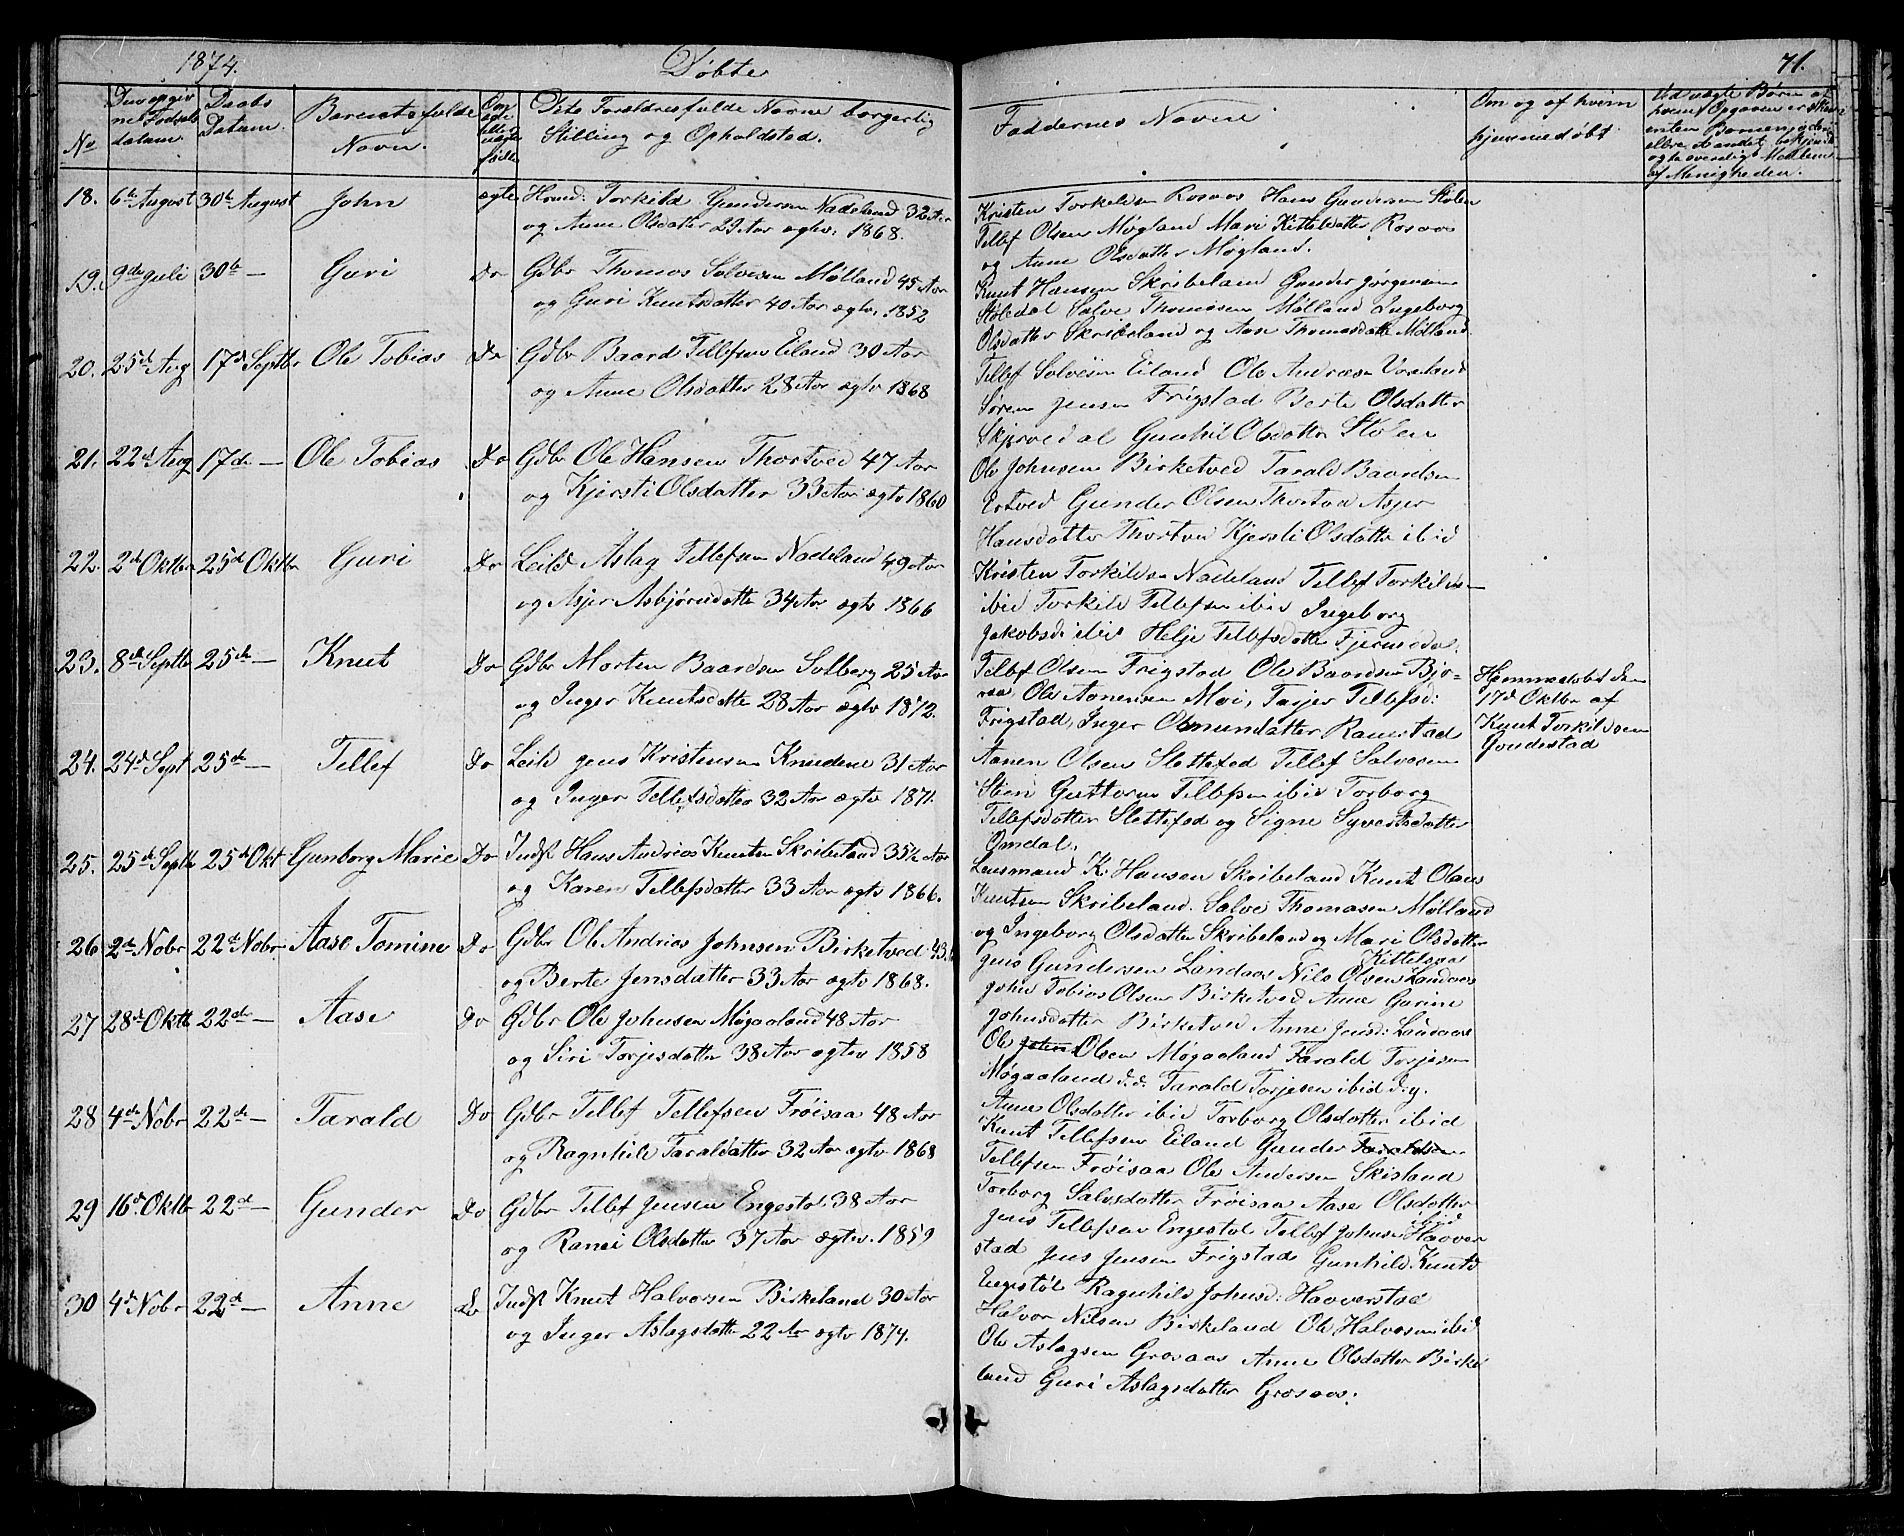 1874.
Døbte
71.
No
Datum.
Barnets fulde
Navn.
Dets Forældres fulde Navne borgerlig
Stilling og Opholdsted.
Faddernes Navne
Om og af hvem
hjemmedøbt
af Menigheden.
18. 6te August 30te August John ægte Huusd: Torkild Gundersen Nadeland 32 Aar
og Anne Olsdatter 29 Aar ægtev. 1868.
Kristen Torkildsen Rosaas Hans Gundersen Stolen
Tellef Olsen Møgland Mari Kittelsdatter Rosaas
og Anne Olsdatter Møgland.
19. 9de Juli 30te — Guri Do Gdbr Thomas Salvesen Mølland 45 Aar
og Guri Knutsdatter 40 Aar ægtv. 1852
Knut Hansen Skribeland Gunder Jørgensen
Støledal Salve Thomasen Mølland Ingeborg
Olsdatter Skribeland og Aase Thomasdatte Mølland
20. 25de Aug 17de Septbr Ole Tobias Do Gdbr Baard Tellefsen Eiland 30 Aar
og Anne Olsdatter 28 Aar ægtv 1868
Tellef Solvesen Eiland Ole Andreasen
Søren Jensen Frigstad Berte Olsdatter
Skjervedal Gunhil Olsdatter Stolen
21. 22de Aug 17de — Ole Tobias Do Gdbr Ole Hansen Thortved 47 Aar
og Kjersti Olsdatter 33 Aar ægtv 1860
Ole Johnsen Birketved Tarald Baardsen
Ertved Gunder Olsen Thortved Asjer
Hansdatter Thortved Kjersti Olsdatter ibid
22. 2de Oktbr 25de Oktbr Guri Do Leild Aslag Tellefsen Nadeland 49 Aar
og Asjer Asbjørnsdatte 34 Aar ægtv 1866
Kristen Torkildsen Nadeland Tellef Torkildsen
ibid Torkild Tellefsen ibid Ingeborg
Jakobsd: ibid Helje Tellefsdatter Fjermedal.
23. 8de Septbr 25de — Knut Do Gdbr Morten Baardsen Solberg 25 Aar
og Inger Knutsdatte 28 Aar ægtv 1872.
Tellef Olsen Frigstad Ole Baardsen Bjo-
raa Ole Aanensen Moi, Tasjer Tellefsd:
Frigstad, Inger Osmundatter Raunstad
Hjemmedøbt den
17de Oktbr af
Knut Torkildsen
Gondestad
24. 24de Sept 25de — Tellef Do Leild Jens Kristensen Knudene 31 Aar
og Inger Tellefsdatter 32 Aar ægtv 1871.
Aanen Olsen Slettefed Tellef Salvesen
Stien Guttorm Tellefsen ibid Torborg
Tellefsdatter Slettefed og Signe Syvertsdatter
Omdal.
25. 25de Septbr 25de Okt Gunborg Marie Do Indst Hans Andreas Knutsen Skribeland 35½ Aar
og Karen Tellefsdatter 33 Aar ægtv 1866.
Lensmand K. Hansen Skribeland Knut Olaus
Knutsen Skribeland. Salve Thomasen Mølland
og Ingeborg Olsdatter Skribeland og Mari Olsdatter
Kittelsaa
26 2de Nobr 22de Nobr Aase Tomine Do Gdbr Ole Andreas Johnsen Birketved 43
og Berte Jensdatter 33 Aar ægtv 1868.
Jens Gundersen Landaas Nils Olsen Landaas
John Tobias Olsen Birketved Anne Gurine
Johnsdatter Birketved Anne Jensd: Landaas
27 28de Oktbr 22de — Aase Do Gdbr Ole Johnsen Møgaaland 48 Aar
og Siri Torjesdatter 38 Aar ægtv 1858
Ole John Olsen Møgaaland Tarald Torjesen
Møgaaland d.æ. Tarald Torjesen ibid d.y.
Anne Olsdatter ibid Torborg Olsdatter ibid
28 4de Nobr 22de — Tarald Do Gdbr Tellef Tellefsen Frøisaa 48 Aar
og Ragnhild Taraldsdatter 32 Aar ægtv 1868
Knut Tellefsen Eiland Gunder Taraldsen
Tellefsen Frøisaa Ole Andersen Skisland
Torborg Salvsdatter Frøisaa Aase Olsdatter
ibid
29 16de Oktbr 22de — Gunder Do Gdbr Tellef Jensen Engestøl 38 Aar
og Ranei Olsdatter 37 Aar ægtv. 1859
Jens Tellefsen Engestøl Tellef Johnsen Haaver
stad Jens Jensen Frigstad Gunhild Knutsd
Engestøl Ragnhild Johnsd: Haaverstad
30 4de Nobr 22de — Anne Do Indst Knut Halvorsen Birkeland 30 Aar
og Inger Aslagsdatte 22 Aar ægtv 1874.
Halvor Nilsen Birkeland Ole Halvorsen ibid
Ole Aslagsen Grosaas Anne Olsdatter Birke
land Guri Aslagsdatter Grosaas.